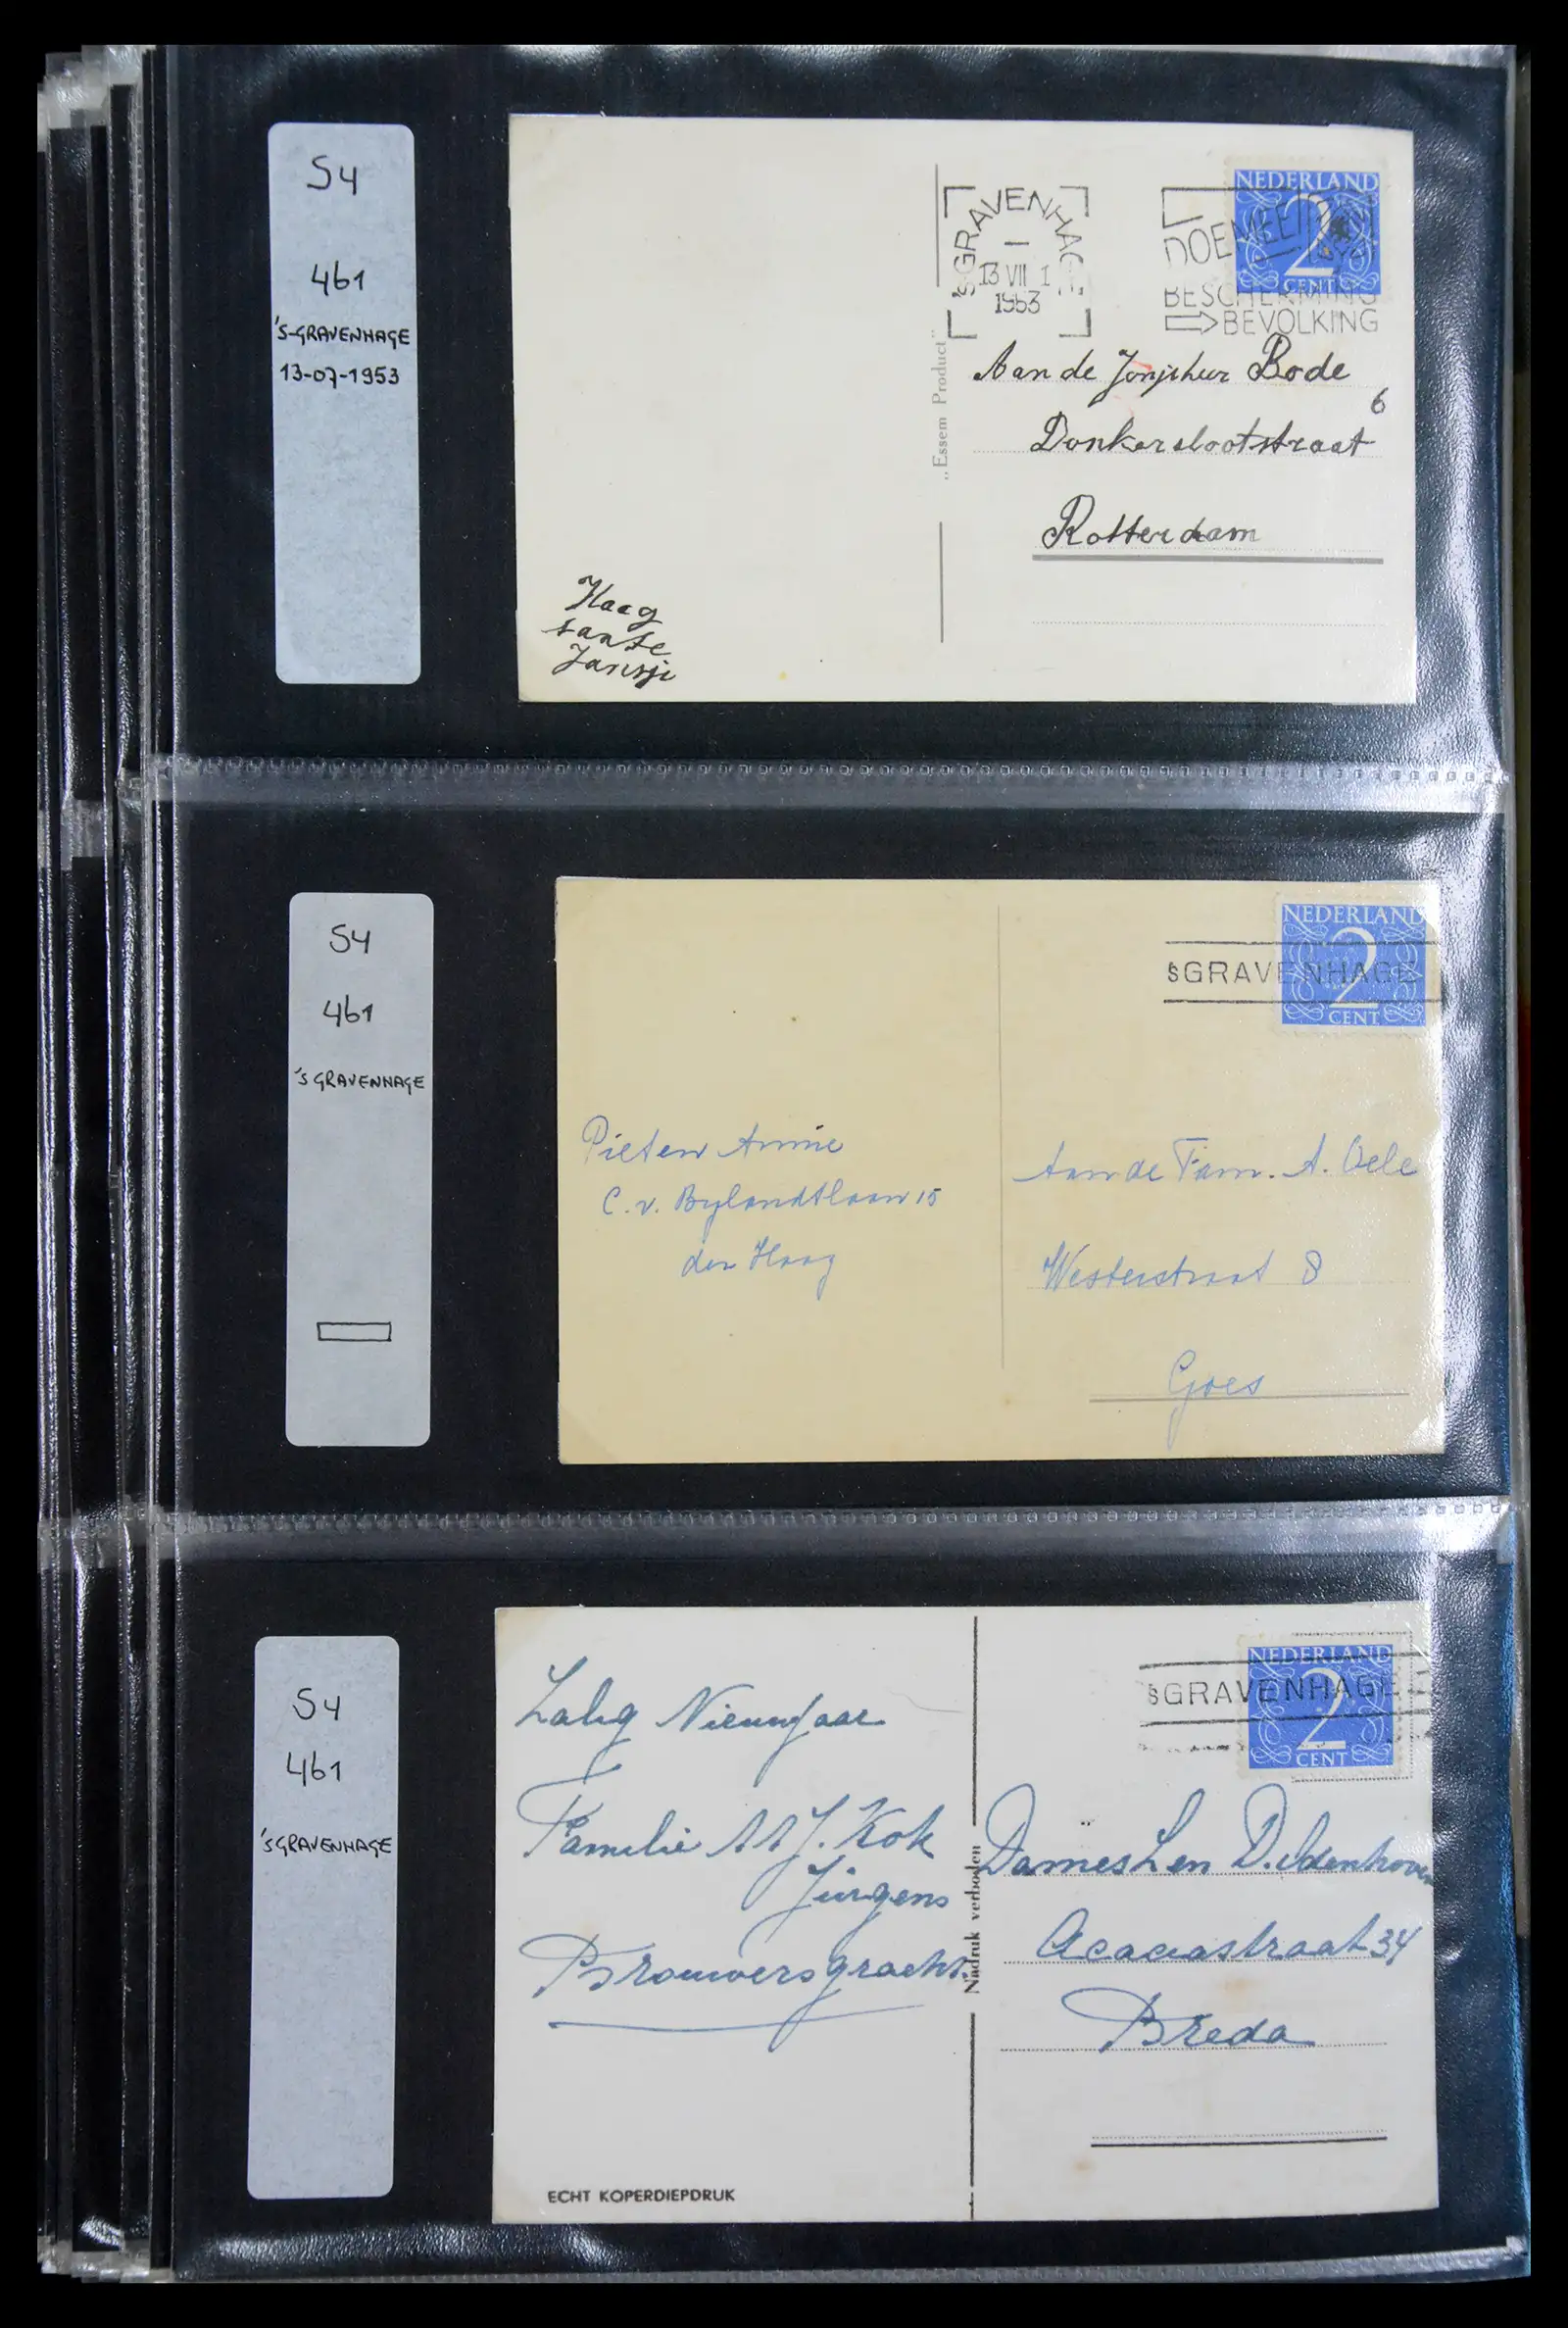 S4
461
'S-GRAVENHAGE
13-07-1953
'SGRAVENHAGE
13 VII 1
1953
DOE MEE
BESCHERMING
BEVOLKING
NEDERLAND
2
CENT
„Essem Product"
Aan de Jonjeheer Bode
Donkerslootstraat 6
Rotterdam
Haag
tante
Jansje
S4
461
'S GRAVENHAGE
'sGRAVENHAGE
NEDERLAND
2
CENT
Piet en Annie
C. v. Bylandtlaan 15
den Haag
Aan de Fam. A. Oele
Westerstraat 8
Goes
S4
461
'SGRAVENHAGE
'sGRAVENHAGE
NEDERLAND
2
CENT
Zalig Nieuwjaar
Familie J. Kok
Jürgens
Brouwersgracht
Nadruk verboden
Dames L en D.
Acaciastraat 34
Breda
ECHT KOPERDIEPDRUK